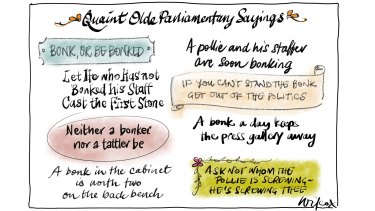 Quaint Olde Parliamentary Sayings
BONK, OR BE BONKED
Let He who Has not
Bonked his Staff
Cast the First Stone
Neither a bonker
nor a tattler be
A bonk in the cabinet
is worth two
on the back bench
A pollie and his staffer
are soon bonking
IF YOU CAN'T STAND THE BONK
GET OUT OF THE POLITICS
A bonk a day keeps
the press gallery away
ASK NOT WHOM THE
POLLIE IS SCREWING-
HE'S SCREWING THEE
Wilcox